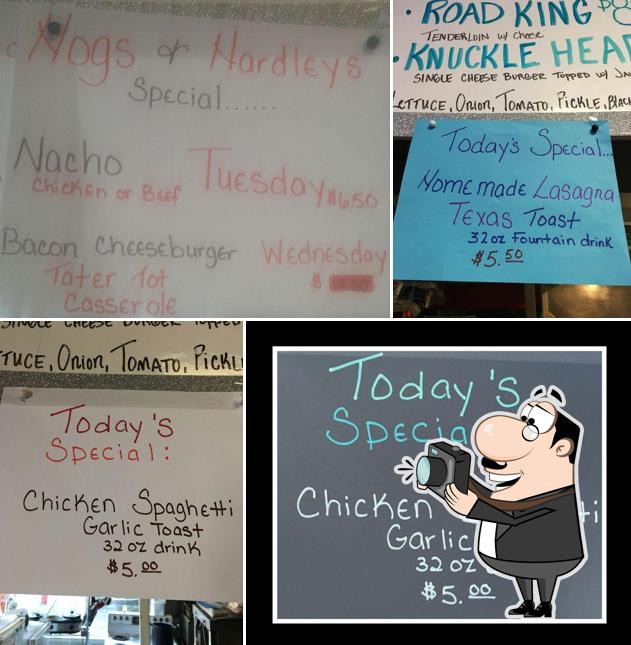 Hogs or Hardleys
Special......
Nacho Tuesday $6.50
Chicken or Beef
Bacon Cheeseburger Wednesday
Tater Tot $
Casserole
ROAD KING
TENDERLOIN w/ Cheese
KNUCKLE HEA
SINGLE CHEESE BURGER TOPPED W/ JA
LETTUCE, ONION, TOMATO, PICKLE, BLAC
Today's Special...
Homemade Lasagna
Texas Toast
32 oz Fountain drink
$5.50
SINGLE CHEESE BURGER TOPPED
TUCE, ONION, TOMATO, PICKL
Today's
Special:
Chicken Spaghetti
Garlic Toast
32 oz drink
$5.00
Today's
Specia
Chicken ti
Garlic
32 oz
$5.00